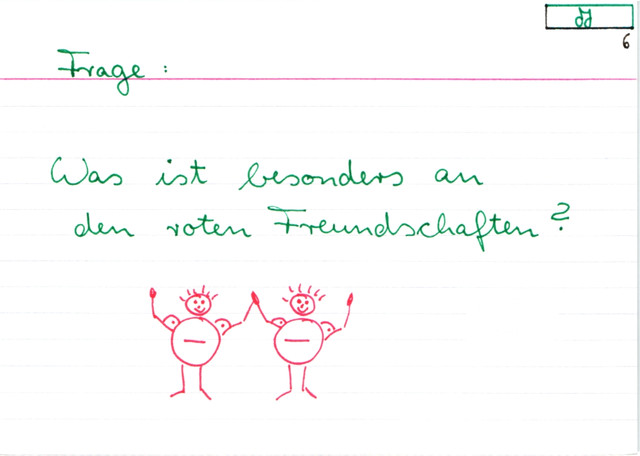 6
Frage :
Was ist besonders an
den roten Freundschaften ?